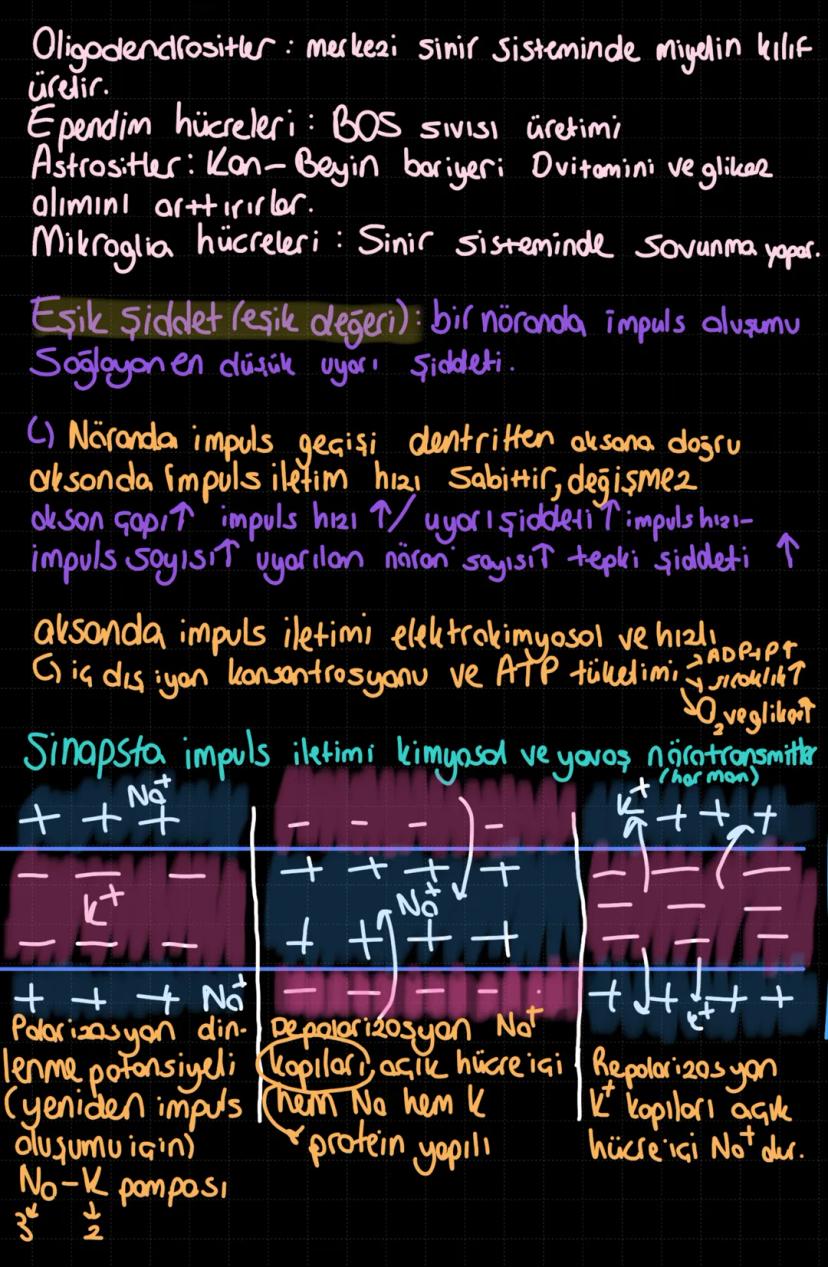 Oligodendrositler : merkezi sinir sisteminde miyelin kılıf
üretir.
Ependim hücreleri : BOS sıvısı üretimi
Astrositler : Kan-Beyin bariyeri D vitamini ve glikoz
alımını arttırırlar.
Mikroglia hücreleri : Sinir sisteminde savunma yapar.
Eşik Şiddet (eşik değeri) : bir nöronda impuls oluşumu
Sağlayan en düşük uyarı şiddeti.
Nöronda impuls geçişi dentritten aksona doğru
aksonda impuls iletim hızı Sabittir, değişmez
akson çapı↑ impuls hızı ↑/ uyarı şiddeti↑ impuls hızı-
impuls sayısı↑ uyarılan nöron sayısı↑ tepki şiddeti ↑
aksonda impuls iletimi elektrokimyasal ve hızlı
iç dış iyon konsantrasyonu ve ATP tüketimi
→ ADP+P↑
→ sıcaklık↑
→ O₂ ve glikoz↑
Sinapsta impuls iletimi kimyasal ve yavaş nörotransmitter
(hormon)
Na⁺
+ + +
- - -
K⁺
- - -
+ + + Na⁺
Polarizasyon din-
lenme potansiyeli
(yeniden impuls
oluşumu için)
Na-K pompası
3 2
- - - -
+ + + +
Na⁺
+ + + +
- - - - -
Depolarizasyon Na⁺
kapıları açık hücre içi
hem Na hem K
protein yapılı
K⁺ + + +
- - -
- - -
- - -
+ + + +
K⁺
Repolarizasyon
K⁺ kapıları açık
hücre içi Na⁺ dur.